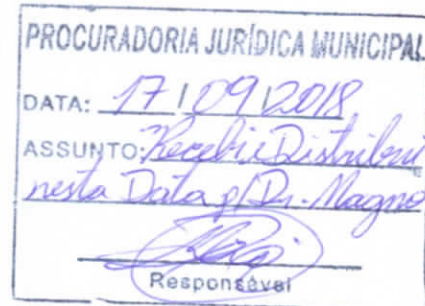 PROCURADORIA JURÍDICA MUNICIPAL
DATA: 17 / 09 / 2018
ASSUNTO: Recebi e Distribui
nesta Data p/ Dr. Magno
Responsável